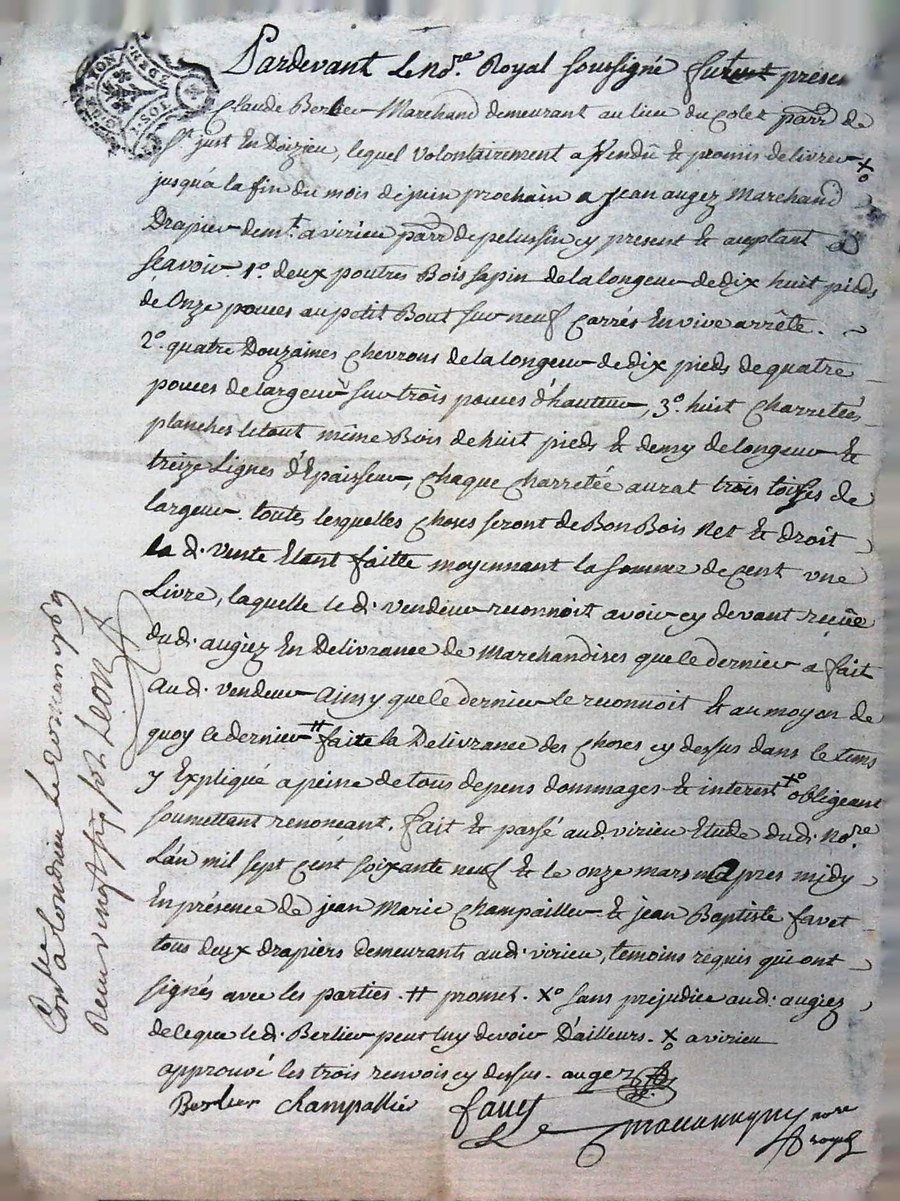 Pardevant Le no.re Royal soussigné furent présen
Claude Berlier Marchand demeurant au lieu du Colet parr de
St just En Doizieu, lequel volontairement a Vendû & promis de livrer X°
jusqua la fin du mois de juin prochain a Jean augez Marchand
Drapier dem.t a virieu parr de pelussin cy present & acceptant
scavoir 1° deux poutres Bois sapin de la longeur de dix huit pieds
de Onze pouces au petit Bout sur neuf Carrés En vive arrête.
2° quatre Douzaines chevrons de la longeur de dix pieds de quatre
pouces de largeur sur trois pouces d'hauteur, 3° huit charretées
planches le tout même Bois de huit pieds & demy de longeur &
treize Lignes d'Epaisseur, chaque charretée aurat trois toises de
largeur. toutes lesquelles choses seront de Bon Bois Net & droit
la d. vente Etant faitte moyennant la somme de cent une
Livre, laquelle le d. vendeur reconnoit avoir cy devant reçûe
du d. augiez En Delivrance de Marchandises que le dernier a fait
au d. vendeur ainsy que le dernier Le reconnoit & au moyen de
quoy le dernier # faire la Delivrance des choses cy dessus dans le tems
y Expliqué a peine de tous depens dommages & interest X° obligeant
soumettant renonceant. fait & passé aud virieu Etude du d. no.re
L'an mil sept cent soixante neuf & le onze mars apres midy
En présence de jean Marie Champailler & jean Baptiste favet
tous deux drapiers demeurants au d. virieu, temoins requis qui ont
signés avec les parties. # promet. X° sans prejudice au d. augiez
de ce que le d. Berlier peut luy devoir D'ailleurs. X° a virieu
approuvé les trois renvois cy dessus. augez
Berlier Champallier favet
no.re royal
Con.lé a Condrieu Le
Reçu vingt six sols Leon